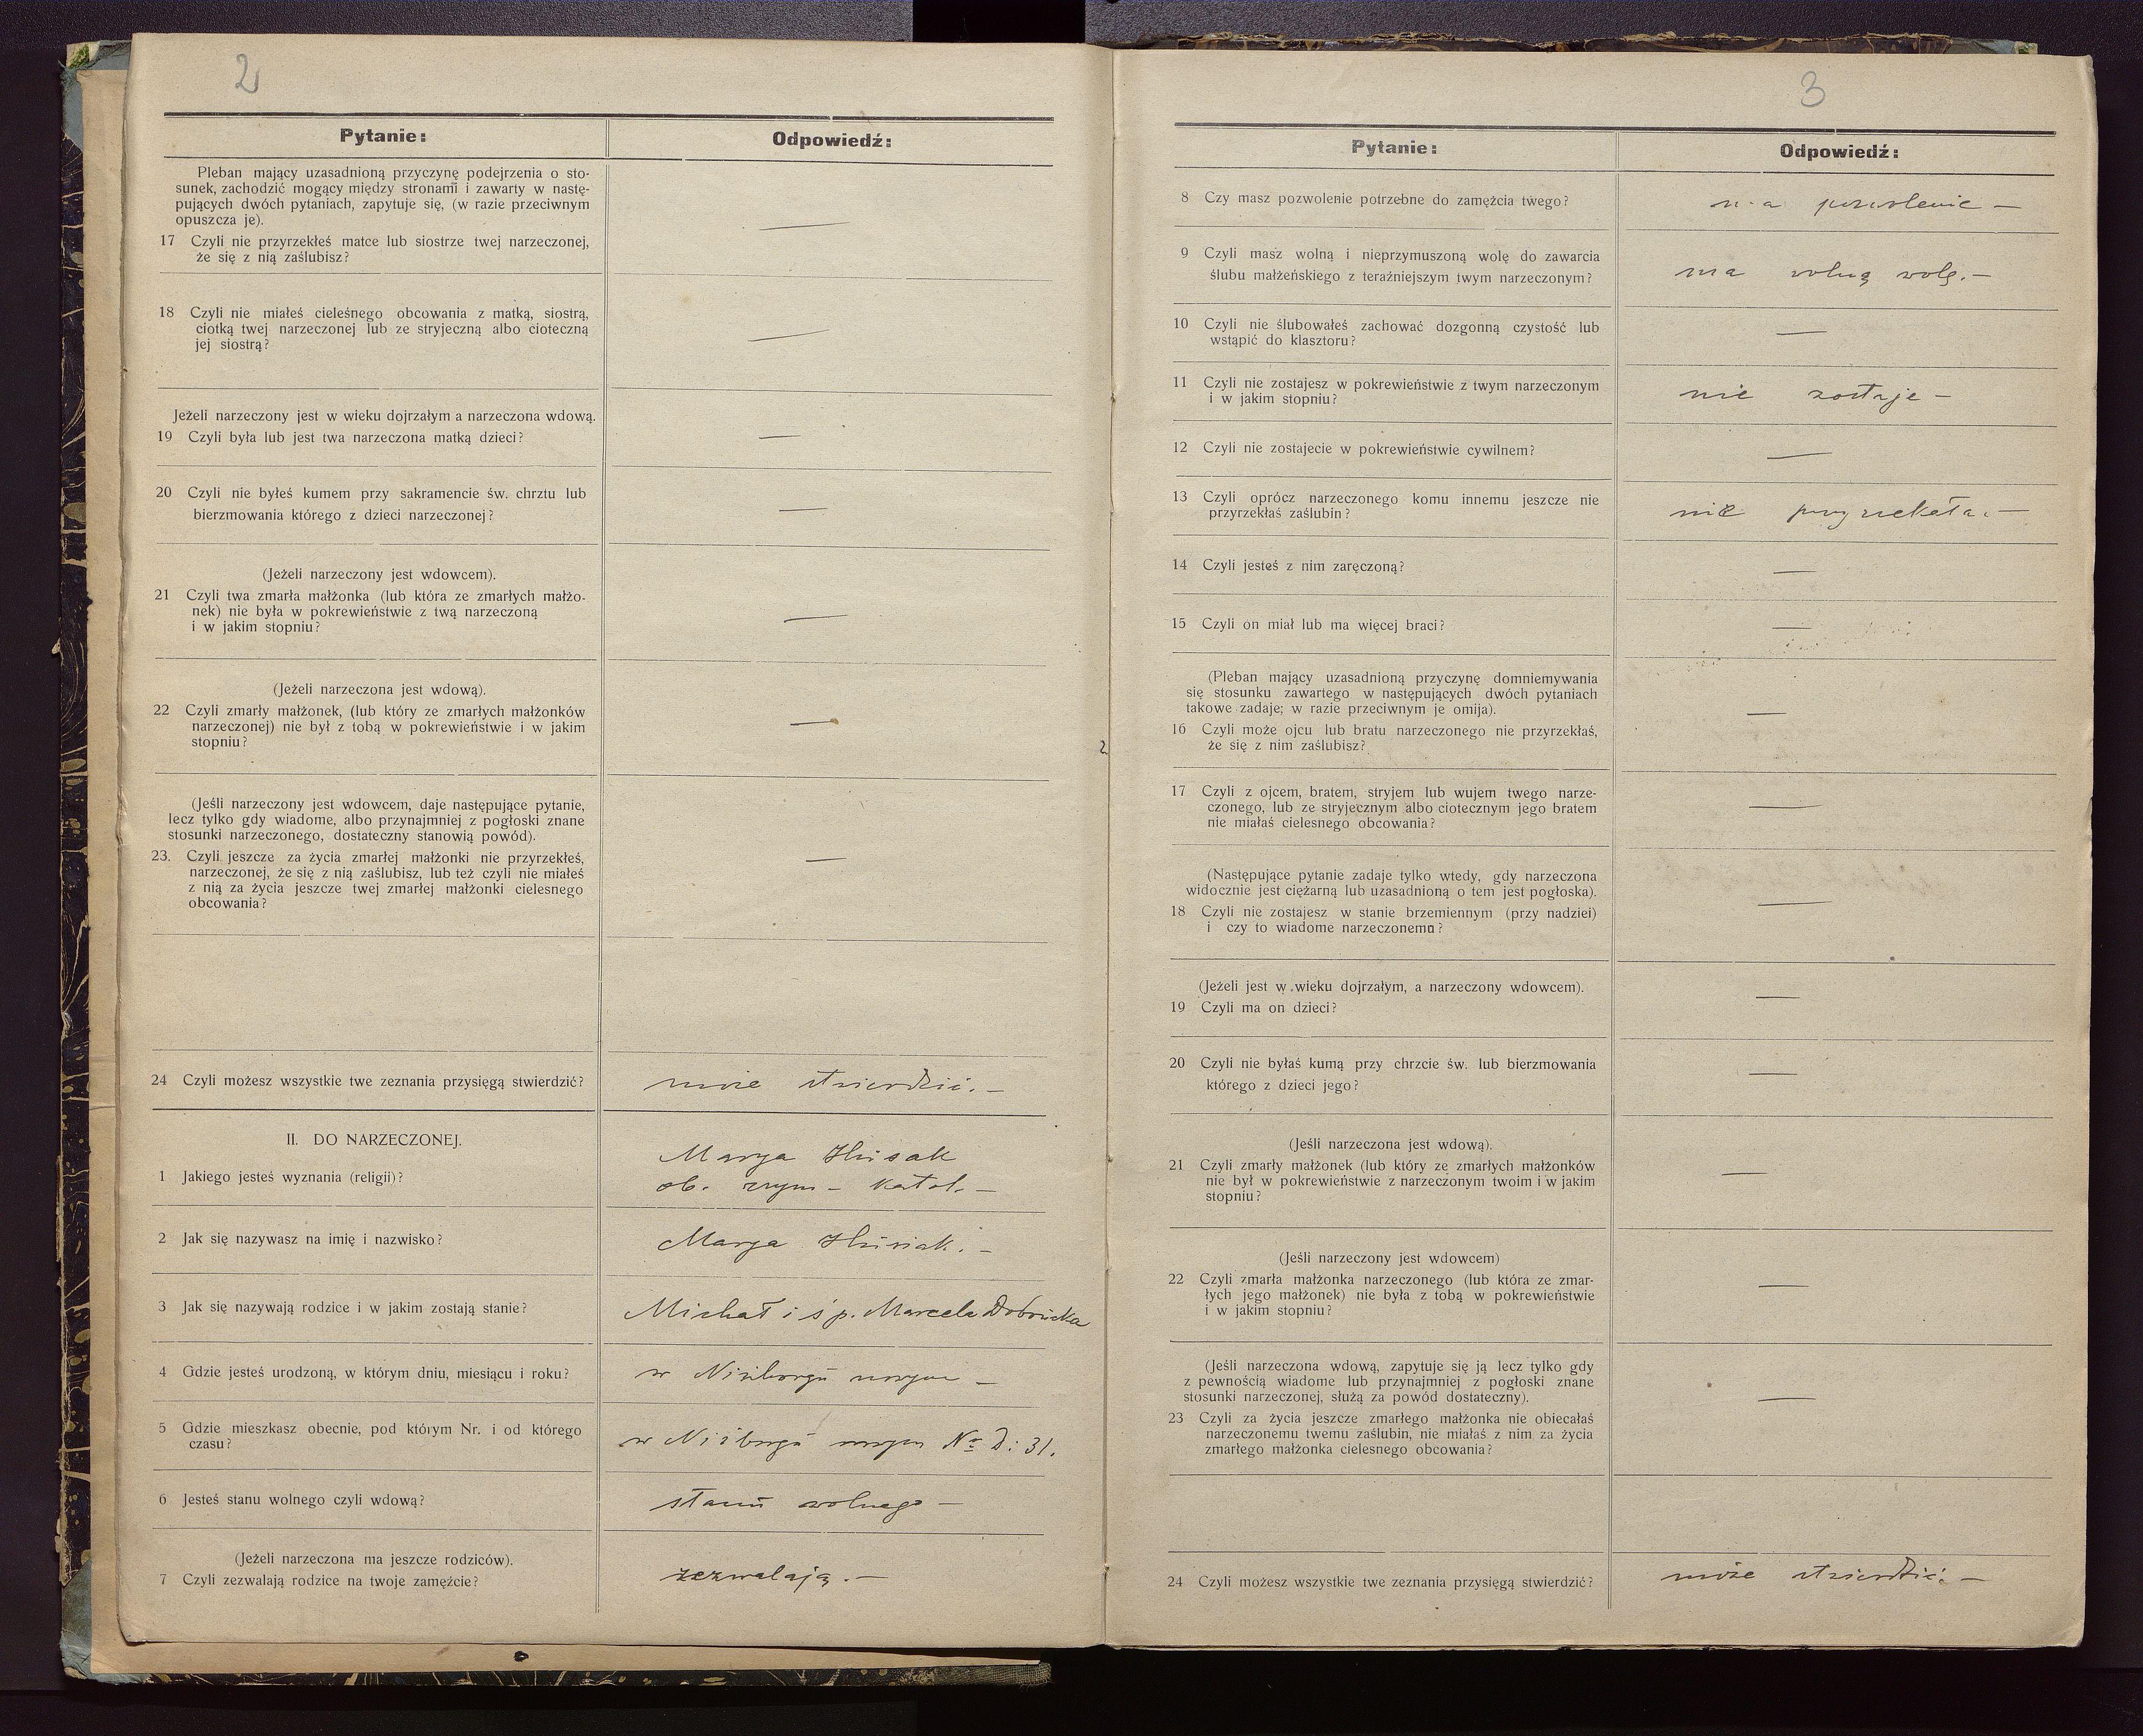 2
Pytanie:
Odpowiedź:
Pleban mający uzasadnioną przyczynę podejrzenia o sto-
sunek, zachodzić mogący między stronami i zawarty w nastę-
pujących dwóch pytaniach, zapytuje się, (w razie przeciwnym
opuszcza je).
17 Czyli nie przyrzekłeś matce lub siostrze twej narzeczonej,
że się z nią zaślubisz?
—
18 Czyli nie miałeś cieleśnego obcowania z matką, siostrą,
ciotką twej narzeczonej lub ze stryjeczną albo cioteczną
jej siostrą?
—
Jeżeli narzeczony jest w wieku dojrzałym a narzeczona wdową.
19 Czyli była lub jest twa narzeczona matką dzieci?
—
20 Czyli nie byłeś kumem przy sakramencie św. chrztu lub
bierzmowania którego z dzieci narzeczonej?
—
(Jeżeli narzeczony jest wdowcem).
21 Czyli twa zmarła małżonka (lub która ze zmarłych małżo-
nek) nie była w pokrewieństwie z twą narzeczoną
i w jakim stopniu?
—
(Jeżeli narzeczona jest wdową).
22 Czyli zmarły małżonek, (lub który ze zmarłych małżonków
narzeczonej) nie był z tobą w pokrewieństwie i w jakim
stopniu?
—
(Jeśli narzeczony jest wdowcem, daje następujące pytanie,
lecz tylko gdy wiadome, albo przynajmniej z pogłoski znane
stosunki narzeczonego, dostateczny stanowią powód).
23. Czyli jeszcze za życia zmarłej małżonki nie przyrzekłeś,
narzeczonej, że się z nią zaślubisz, lub też czyli nie miałeś
z nią za życia jeszcze twej zmarłej małżonki cielesnego
obcowania?
—
24 Czyli możesz wszystkie twe zeznania przysięgą stwierdzić?
może stwierdzić. —
II. DO NARZECZONEJ.
1 Jakiego jesteś wyznania (religii)?
Marya Husak
ob. rzym - katol. —
2 Jak się nazywasz na imię i nazwisko?
Marya Husiak. —
3 Jak się nazywają rodzice i w jakim zostają stanie?
Michał i śp. Marcela Dobrucka
4 Gdzie jesteś urodzoną, w którym dniu, miesiącu i roku?
w Niżborgu nowym —
5 Gdzie mieszkasz obecnie, pod którym Nr. i od którego
czasu?
w Niżborgu nowym Nr D: 31.
6 Jesteś stanu wolnego czyli wdową?
stanu wolnego —
(Jeżeli narzeczona ma jeszcze rodziców).
7 Czyli zezwalają rodzice na twoje zamęźcie?
zezwalają. —
3
Pytanie:
Odpowiedź:
8 Czy masz pozwolenie potrzebne do zamężcia twego?
ma pozwolenie —
9 Czyli masz wolną i nieprzymuszoną wolę do zawarcia
ślubu małżeńskiego z teraźniejszym twym narzeczonym?
ma wolną wolę. —
10 Czyli nie ślubowałeś zachować dozgonną czystość lub
wstąpić do klasztoru?
—
11 Czyli nie zostajesz w pokrewieństwie z twym narzeczonym
i w jakim stopniu?
nie zostaje —
12 Czyli nie zostajecie w pokrewieństwie cywilnem?
—
13 Czyli oprócz narzeczonego komu innemu jeszcze nie
przyrzekłaś zaślubin?
nie przyrzekała. —
14 Czyli jesteś z nim zaręczoną?
—
15 Czyli on miał lub ma więcej braci?
—
(Pleban mający uzasadnioną przyczynę domniemywania
się stosunku zawartego w następujących dwóch pytaniach
takowe zadaje; w razie przeciwnym je omija).
16 Czyli może ojcu lub bratu narzeczonego nie przyrzekłaś,
że się z nim zaślubisz?
—
17 Czyli z ojcem, bratem, stryjem lub wujem twego narze-
czonego, lub ze stryjecznym albo ciotecznym jego bratem
nie miałaś cielesnego obcowania?
—
(Następujące pytanie zadaje tylko wtedy, gdy narzeczona
widocznie jest ciężarną lub uzasadnioną o tem jest pogłoska).
18 Czyli nie zostajesz w stanie brzemiennym (przy nadziei)
i czy to wiadome narzeczonemu?
—
(Jeżeli jest w wieku dojrzałym, a narzeczony wdowcem).
19 Czyli ma on dzieci?
—
20 Czyli nie byłaś kumą przy chrzcie św. lub bierzmowania
którego z dzieci jego?
—
(Jeśli narzeczona jest wdową).
21 Czyli zmarły małżonek (lub który ze zmarłych małżonków
nie był w pokrewieństwie z narzeczonym twoim i w jakim
stopniu?
—
(Jeśli narzeczony jest wdowcem)
22 Czyli zmarła małżonka narzeczonego (lub która ze zmar-
łych jego małżonek) nie była z tobą w pokrewieństwie
i w jakim stopniu?
—
(Jeśli narzeczona wdową, zapytuje się ją lecz tylko gdy
z pewnością wiadome lub przynajmniej z pogłoski znane
stosunki narzeczonej, służą za powód dostateczny).
23 Czyli za życia jeszcze zmarłego małżonka nie obiecałaś
narzeczonemu twemu zaślubin, nie miałaś z nim za życia
zmarłego małżonka cielesnego obcowania?
—
24 Czyli możesz wszystkie twe zeznania przysięgą stwierdzić?
może stwierdzić. —